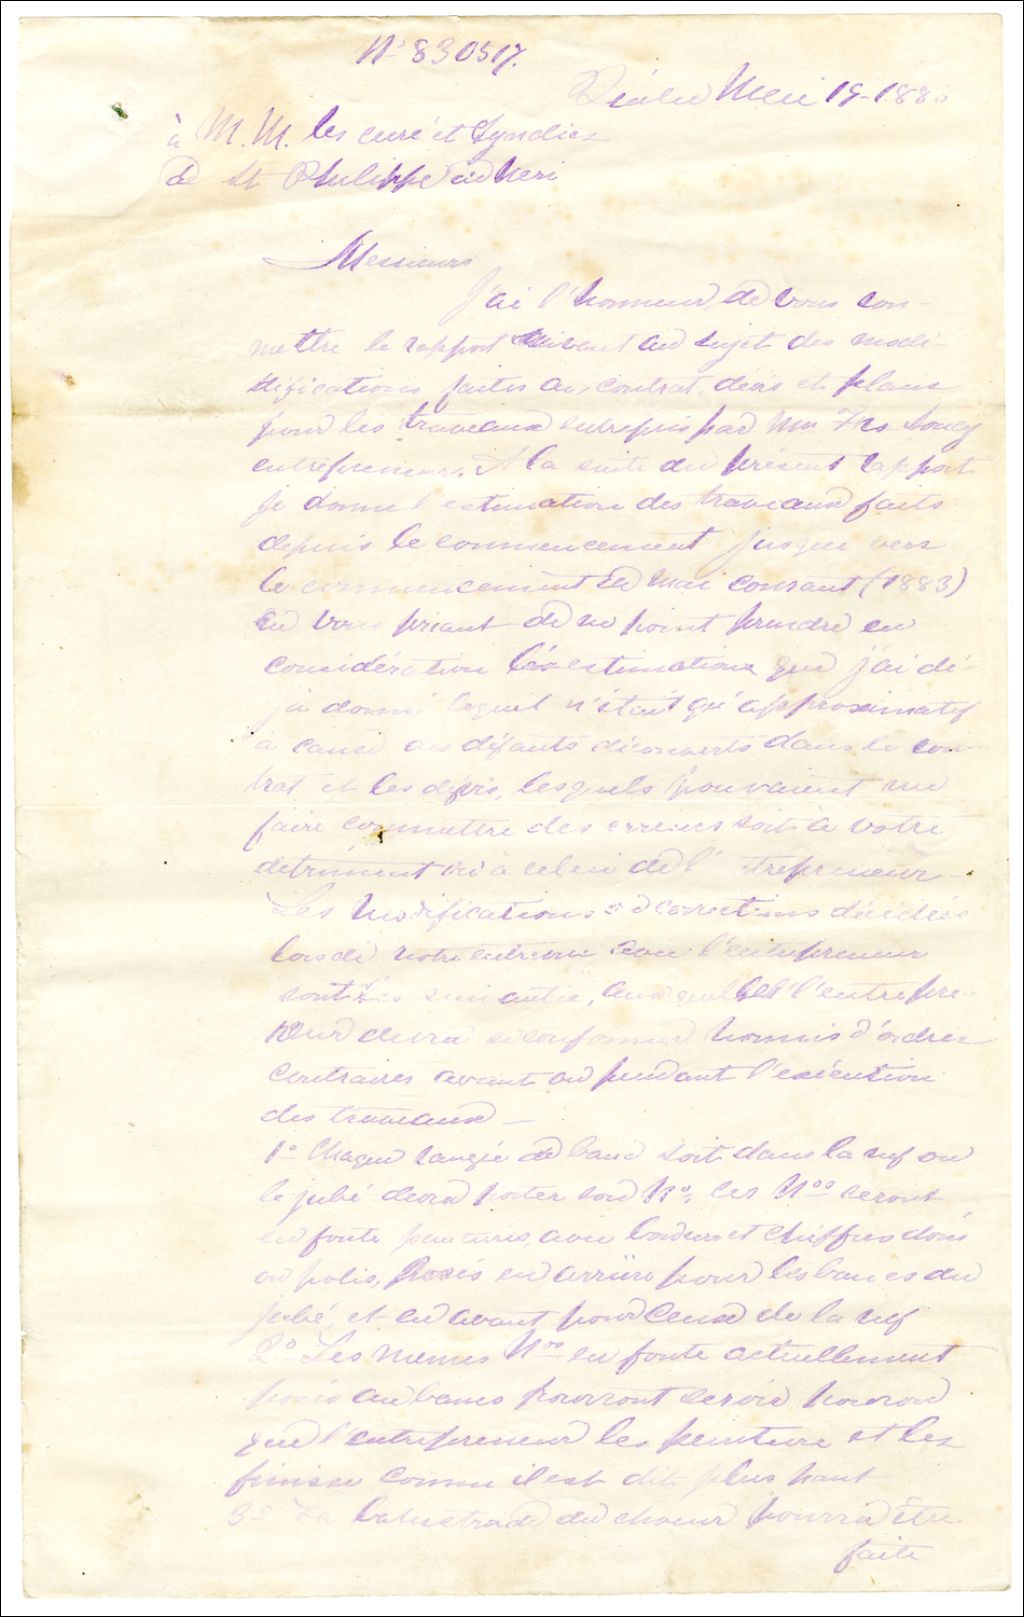 N° 830517.
Québec Mai 19-188
à M. M. les curé et Syndics
de St Philippe de Neri
Messieurs
J'ai l'honneur de vous sou-
mettre le rapport suivant au sujet des modi-
fications faites au contrat, devis et plans
pour les travaux entrepris par Mr Frs Soucy
entrepreneur. A la suite du présent rapport
je donne l'estimation des travaux faits
depuis le commencement jusque vers
le commencement de mai courant (1883)
en vous priant de ne point prendre en
considération les estimations que j'ai dé-
jà donné lequel n'était qu'approximatif
à cause des défauts découverts dans le con-
trat et les devis, lesquels pouvaient me
faire commettre des erreurs soit à votre
détriment ou à celui de l'entrepreneur -
Les modifications et corrections décidées
lors de notre entrevue avec l'entrepreneur
sont les suivantes, auxquelles l'entrepre-
neur devra se conformer hormis d'ordres
contraires avant ou pendant l'exécution
des travaux -
1° Chaque rangée de banc soit dans la nef ou
le jubé devra porter son N°, ces Nos seront
en fonte peinturés, avec bordure et chiffres dorés
ou polis, posés en arrière pour les bancs du
jubé, et en avant pour ceux de la nef
2° Les memes Nos en fonte actuellement
posés au bancs pourront servir pourvu
que l'entrepreneur les peinture et les
finisse comme il est dit plus haut
3° La balustrade du choeur pourra être
faite